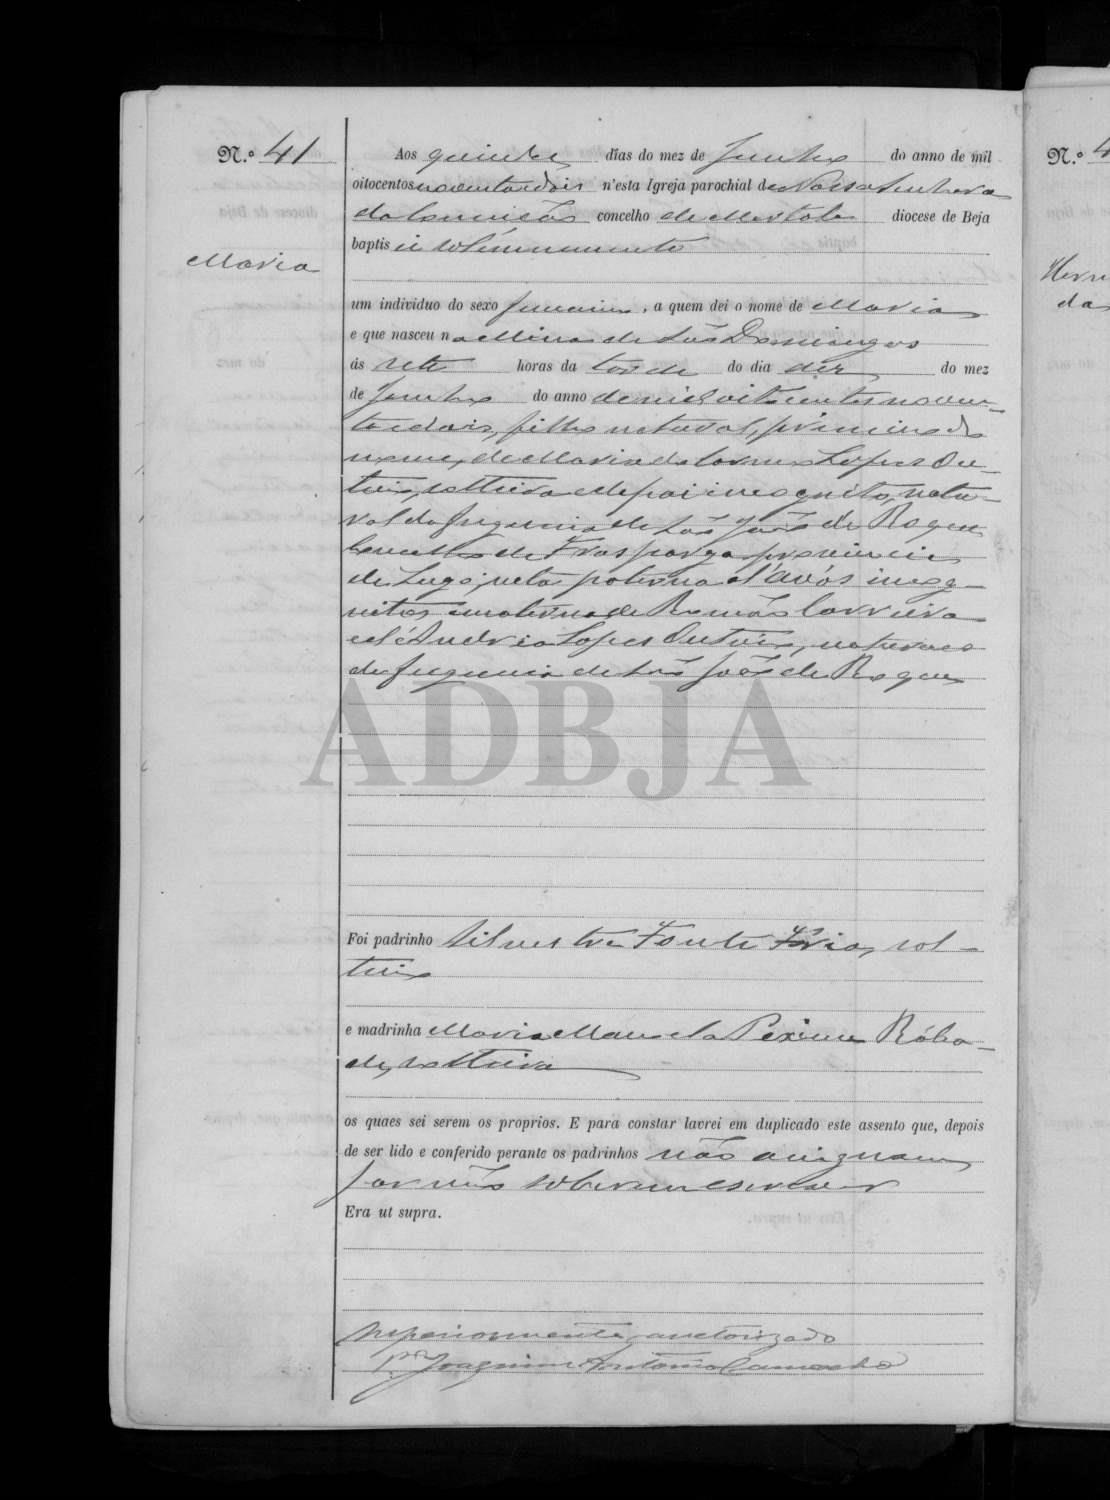 N.º 41
Aos quinze dias do mez de Junho do anno de mil
oitocentos noventa e dois n'esta Igreja parochial de Nossa Senhora
da Conceição concelho de Mertola diocese de Beja
baptisei solemnemente
Maria
um individuo do sexo femenino, a quem dei o nome de Maria
e que nasceu na Mina de São Domingos
ás sete horas da tarde do dia dez do mez
de Junho do anno de mil oitocentos noven-
ta e dois, filha natural, primeira do
nome, de Maria do Lopes
solteira e de pai incognito, natu-
ral da freguesia de São João de
concelho de provincia
de Lugo; neta paterna d'avós incog-
nitos e materna de Ramão
e d'Andrea Lopes, naturaes
da freguesia de São João de
ADBJA
Foi padrinho Silvestre Fonte Fria, sol-
teiro
e madrinha Maria Manuela Rába-
de, solteira
os quaes sei serem os proprios. E para constar lavrei em duplicado este assento que, depois
de ser lido e conferido perante os padrinhos não assignam
por não saberem escrever
Era ut supra.
Superiormente auctorizado
P.e Joaquim Antonio Camacho
N.º 4